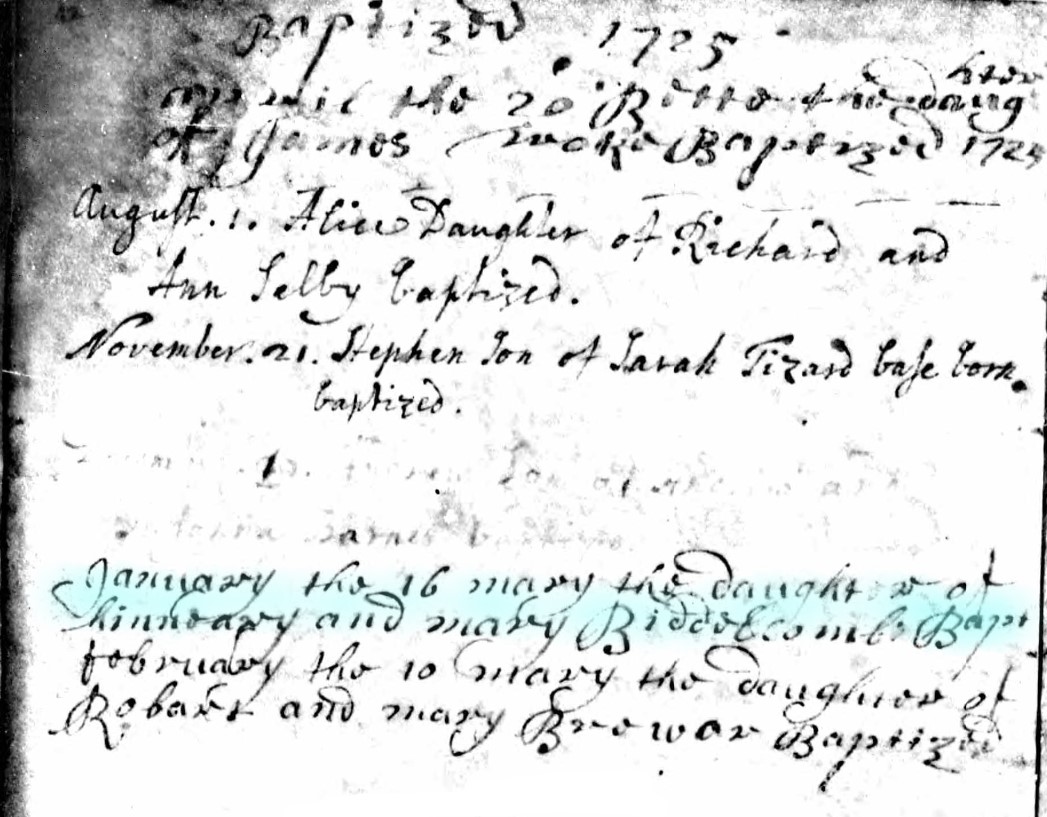 Baptized 1725
april the 20 Bette the daughter
of James Baptized 1725
August. 1. Alice Daughter of Richard and
Ann Selby baptized.
November. 21. Stephen Son of Sarah Tizard base born
baptized.
Son of
baptized
January the 16 mary the daughter of
hinneary and mary Biddelcombe Bapt
february the 10 mary the daughter of
Robart and mary Brewar Baptized